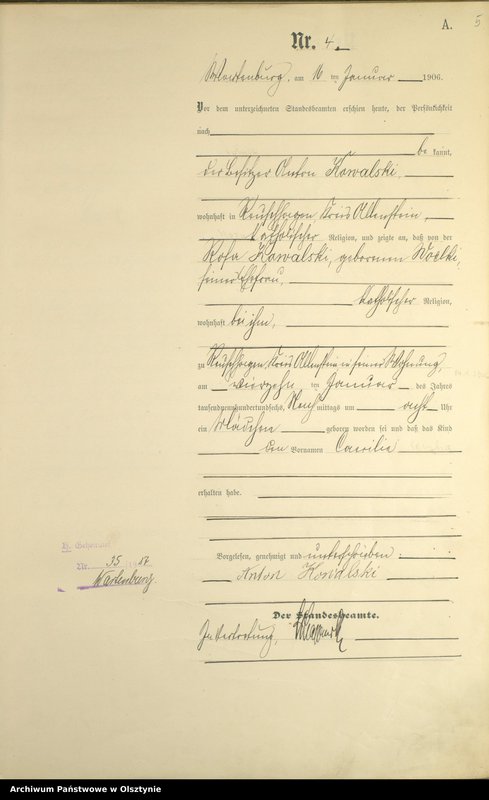 A.
5
Nr. 4
Wartenburg, am 16 ten Januar 1906.
Vor dem unterzeichneten Standesbeamten erschien heute, der Persönlichkeit
nach
be kannt,
der Besitzer Anton Kowalski,
wohnhaft in Kreis Allenstein,
katholischer Religion, und zeigte an, daß von der
Rosa Kowalski, geborenen Woelki,
seiner Ehefrau,
katholischer Religion,
wohnhaft bei ihm,
zu Kreis Allenstein in seiner Wohnung,
am vierzehn ten Januar des Jahres
tausendneunhundertundsechs, Nach mittags um acht Uhr
ein Mädchen geboren worden sei und daß das Kind
den Vornamen Caecilie
erhalten habe.
Vorgelesen, genehmigt und unterschrieben.
Anton Kowalski
H. Geheiratet
Nr. 35
Wartenburg.
Der Standesbeamte.
In Vertretung,
Archiwum Państwowe w Olsztynie